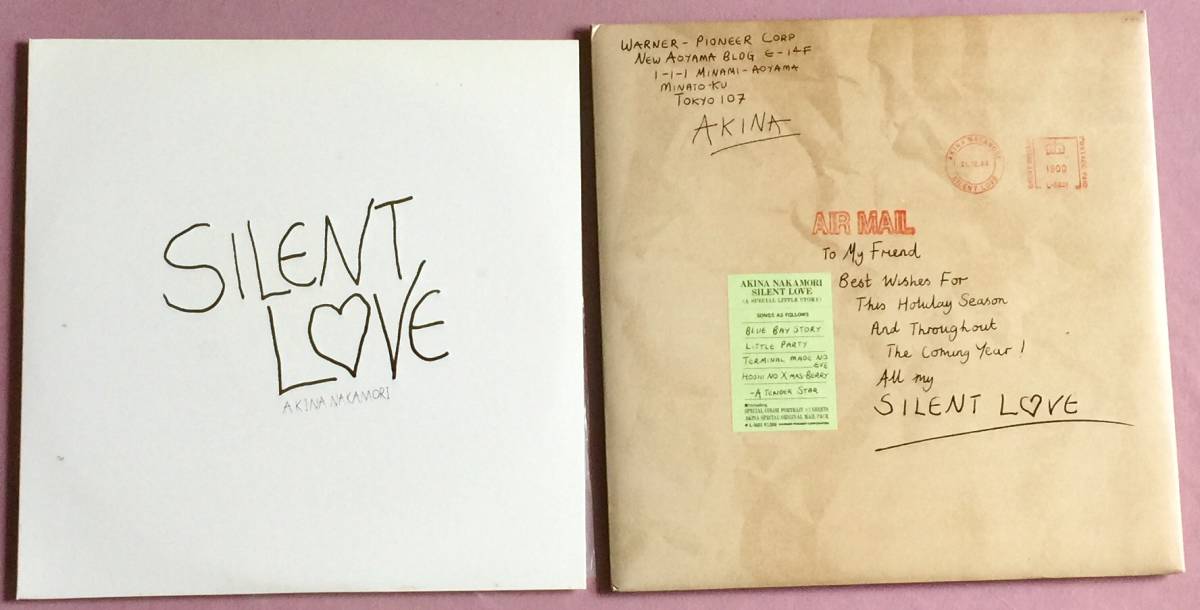 SILENT
LOVE
AKINA NAKAMORI
WARNER - PIONEER CORP
NEW AOYAMA BLDG E-14F
1-1-1 MINAMI-AOYAMA
MINATO-KU
TOKYO 107
AKINA
AKINA NAKAMORI
SILENT LOVE
1800
L-5601
POSTAGE PAID
AIR MAIL
To My Friend
Best Wishes For
This Holiday Season
And Throughout
The Coming Year!
All my
SILENT LOVE
AKINA NAKAMORI
SILENT LOVE
(A SPECIAL LITTLE STORY)
SONGS AS FOLLOWS
BLUE BAY STORY
LITTLE PARTY
TERMINAL MADE NO
EVE
HOSHI NO X'MAS-BERRY
-A TENDER STAR
■Including
SPECIAL COLOR PORTRAIT
SHEETS
AKINA SPECIAL ORIGINAL MAIL PACK
WARNER-PIONEER CORPORATION